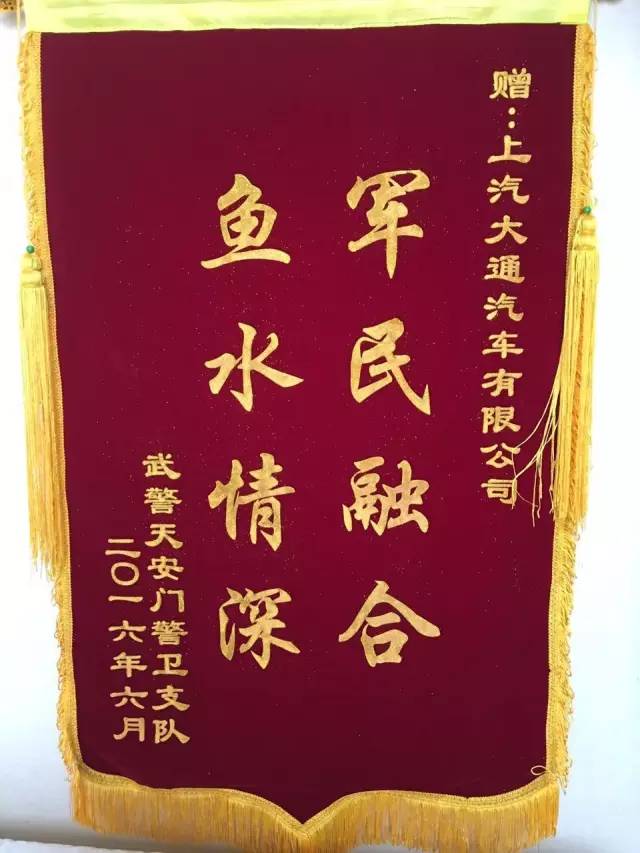 赠：上汽大通汽车有限公司
军民融合
鱼水情深
武警天安门警卫支队
二〇一六年六月